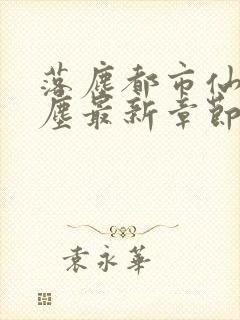 落塵都市仙
塵最新章節
袁永華